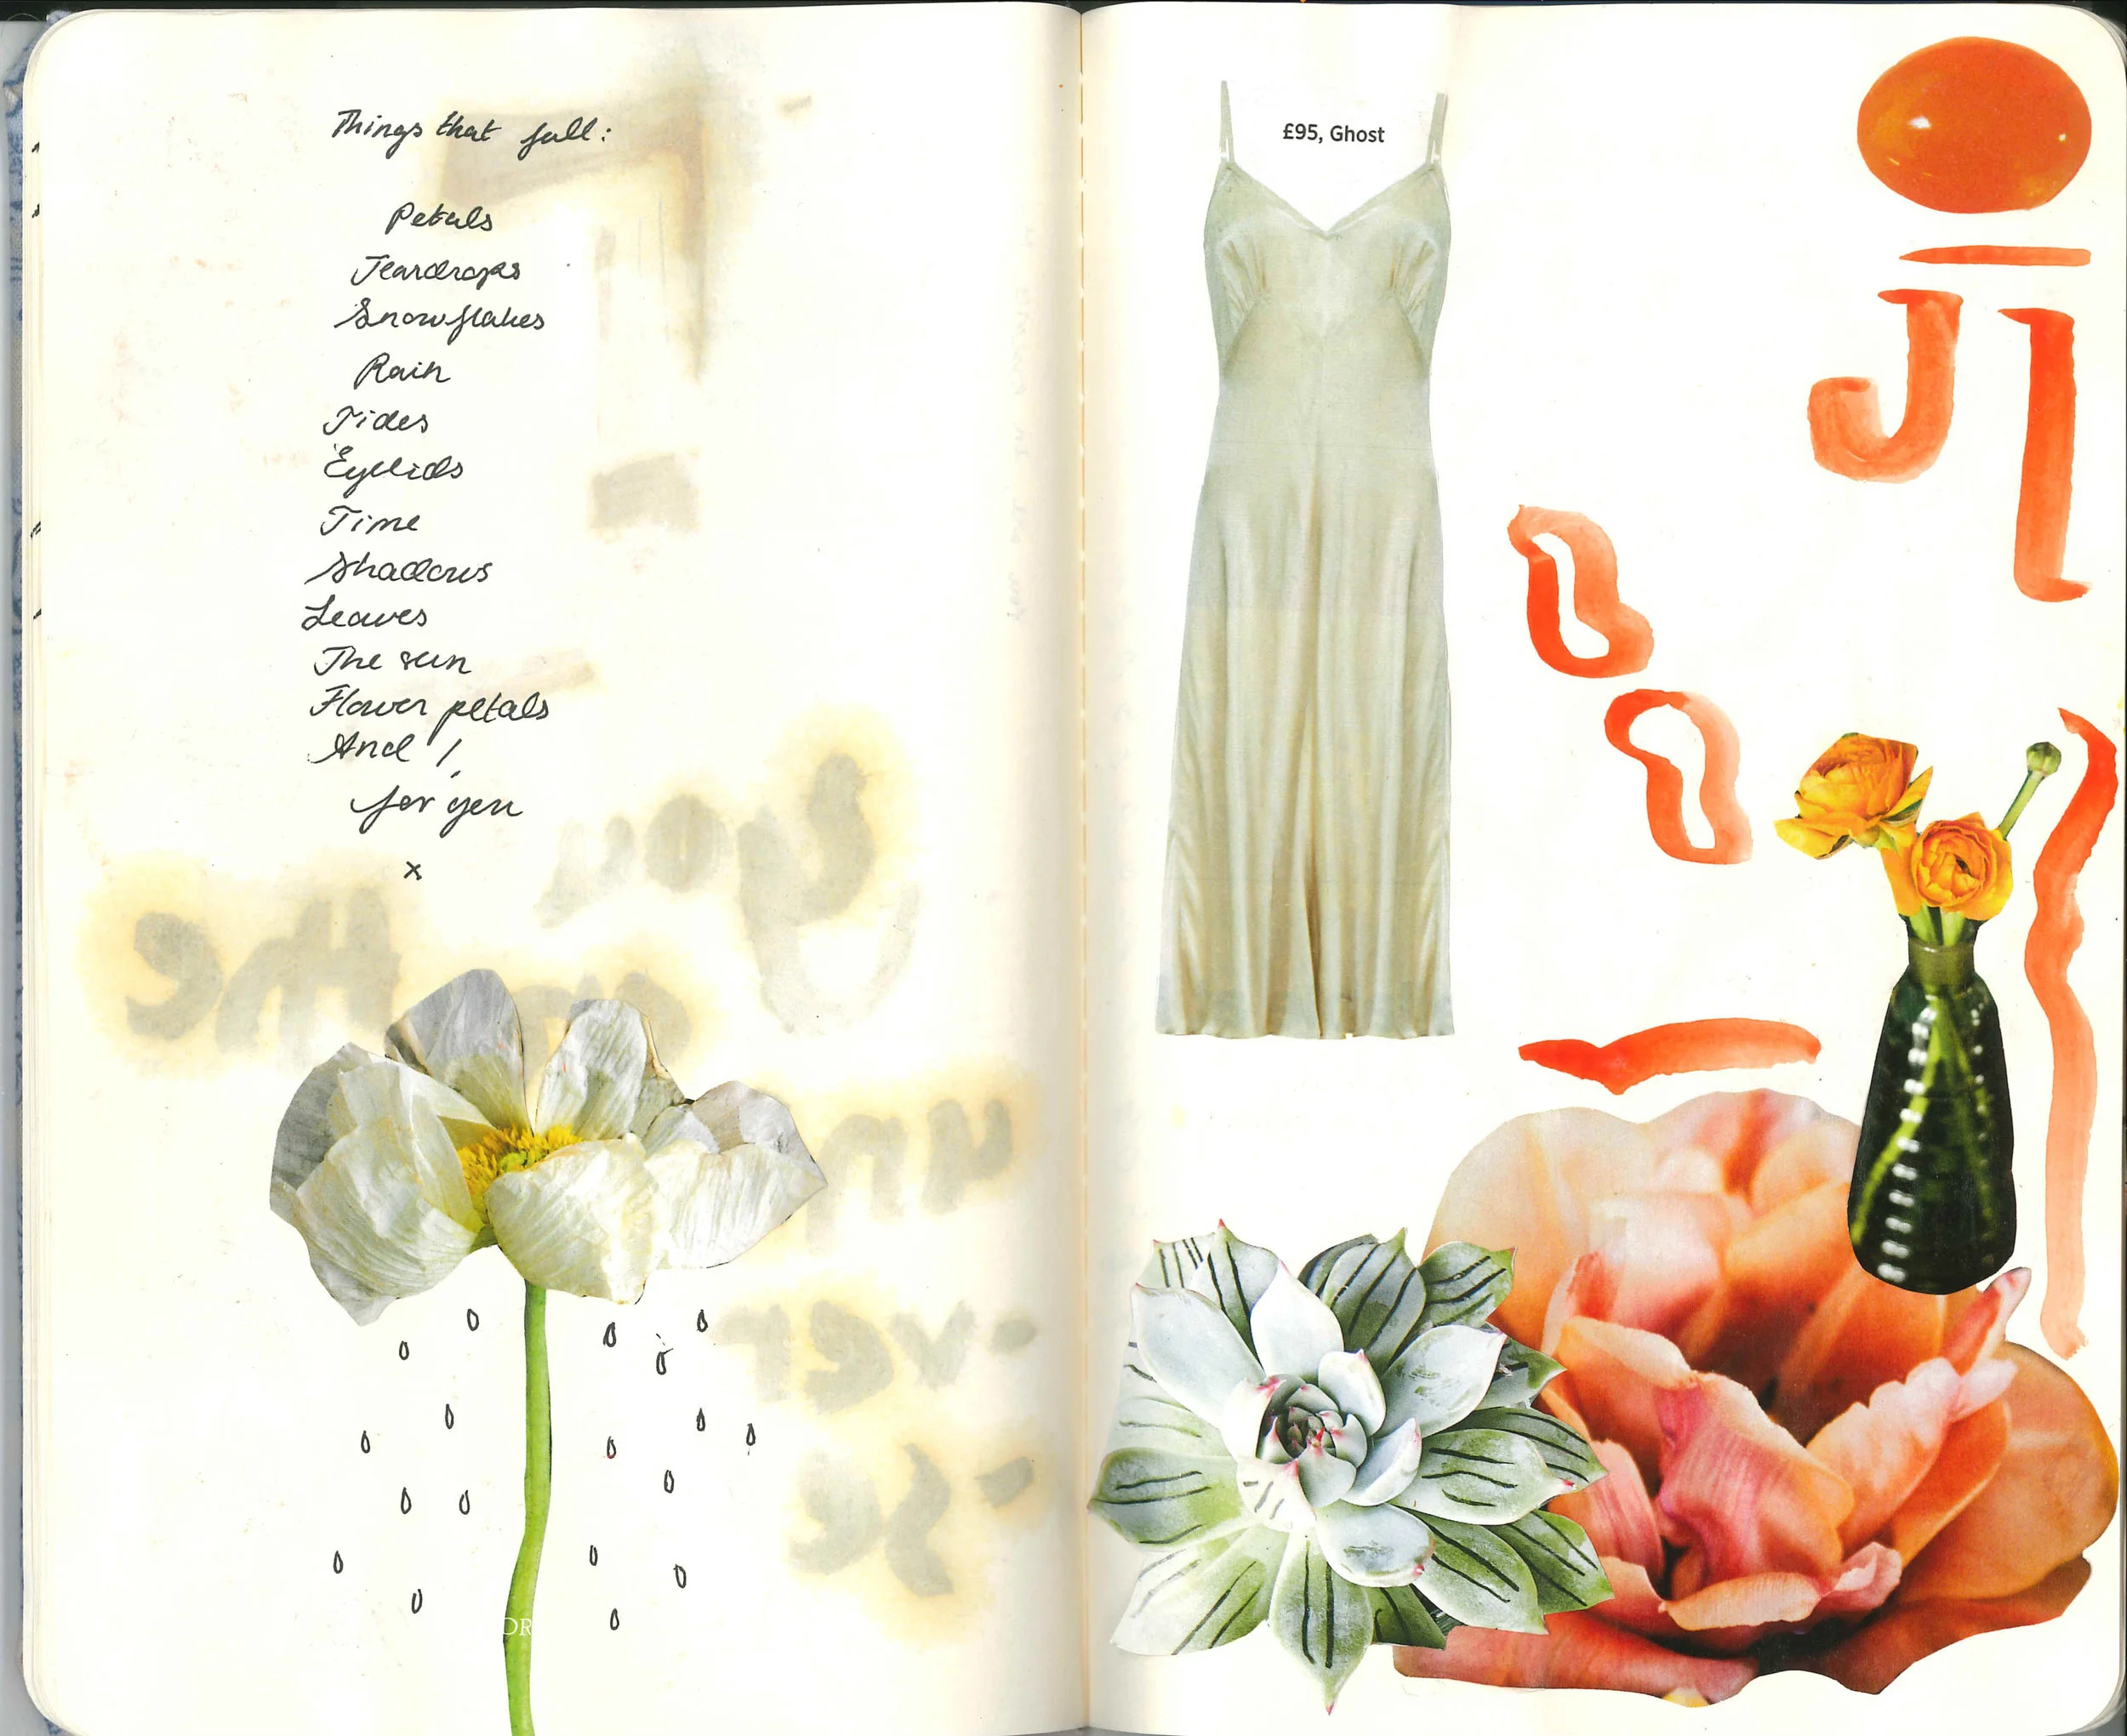 Things that fall:
Petals
Teardrops
Snowflakes
Rain
Tides
Eyelids
Time
Shadows
Leaves
The sun
Flower petals
And I,
for you
x
£95, Ghost
you
on the
un
-ver
-se
DR